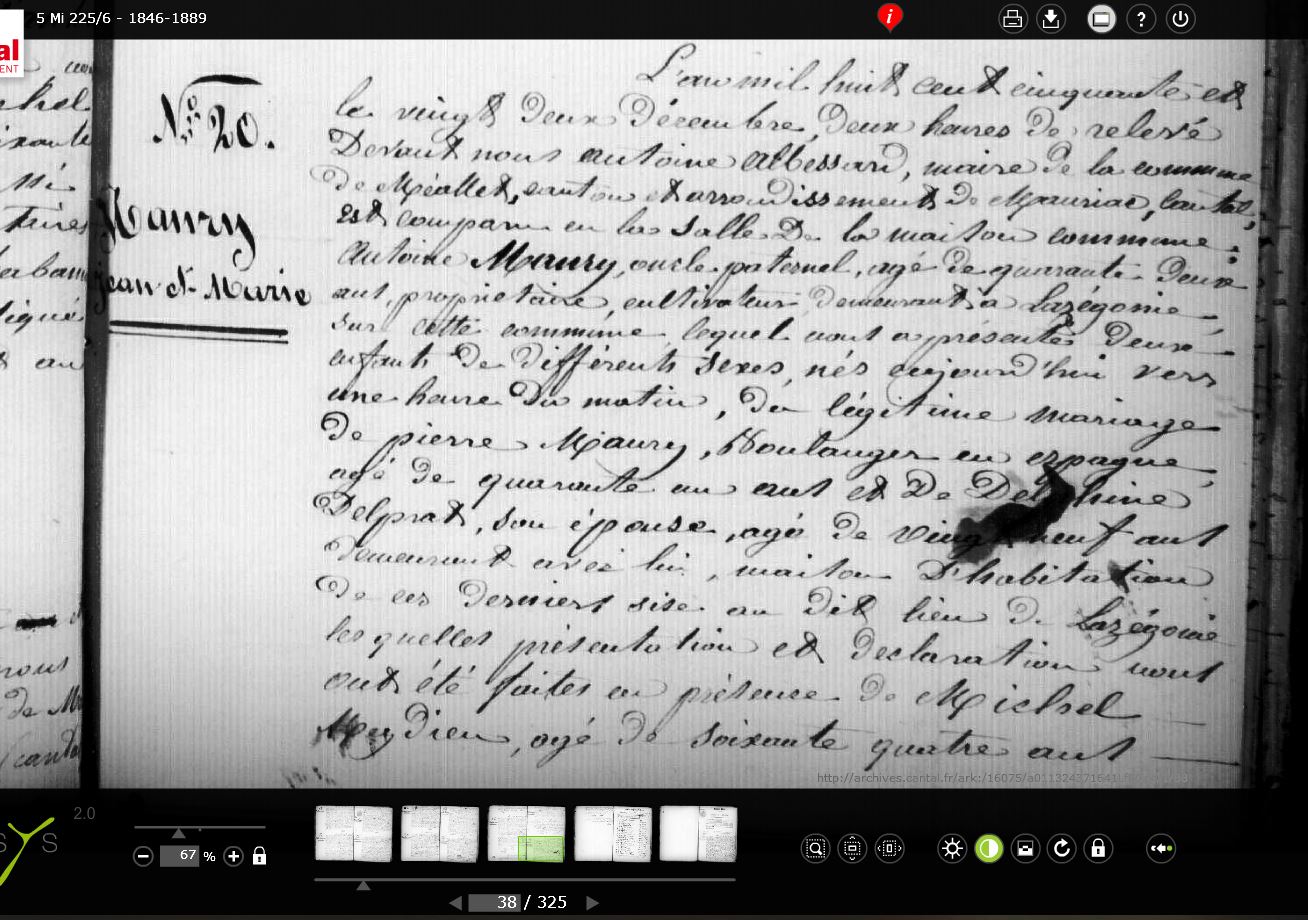 5 Mi 225/6 - 1846-1889
al
ENT
N° 20.
Maury
Jean et Marie
L'an mil huit cent cinquante et
le vingt deux décembre, deux heures de relevé
Devant nous antoine albessard, maire de la commune
de Méallet, canton et arrondissement de Mauriac, cantal,
est comparu en la salle De la maison commune :
antoine Maury, oncle paternel, agé de quarante deux
ans, proprietaire, cultivateur, demeurant à Lazégonie
sur cette commune, lequel nous a présentés deux
enfants de différents sexes, nés aujourd'hui vers
une heure du matin, du légitime mariage
de pierre Maury, Boulanger en espagne
agé de quarante un ans et De Delphine
Delprat, son épouse, agé de vingt neuf ans
demeurant avec lui, maison D'habitation
de ces derniers sise au dit lieu de Lazégonie
les quelles présentation et declaration nous
ont été faites en présence de Michel
Meydieu, agé de soixante quatre ans
http://archives.cantal.fr/ark:/16075/a011324371641
2.0
67 %
38 / 325